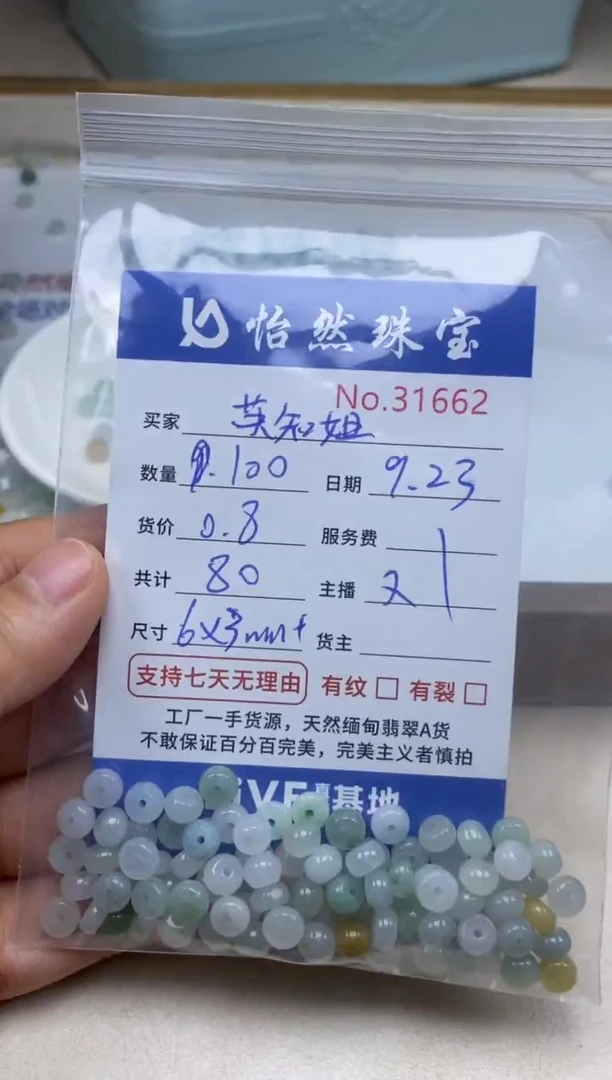 怡然珠宝
No.31662
买家 英知姐
数量 100 日期 9.23
货价 0.8 服务费
共计 80 主播 又
尺寸 6x3mm+ 货主
支持七天无理由 有纹 □ 有裂 □
工厂一手货源，天然缅甸翡翠A货
不敢保证百分百完美，完美主义者慎拍
基地